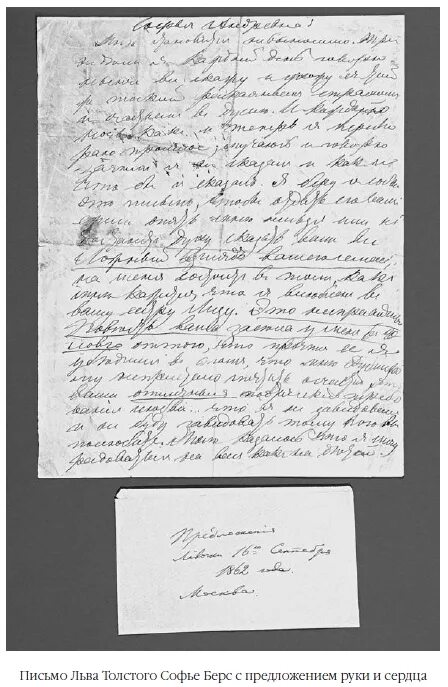 Софья Андревна!
Мнѣ становится невыносимо. Три
недѣли я каждый день говорю:
нынче все скажу и ухожу съ той
же тоской, раскаяніемъ, страхомъ
и счастьемъ въ душѣ. И каждую
ночь, какъ и теперь, я переби
раю прошлое, мучаюсь и говорю:
зачѣмъ я не сказалъ и какъ, и
что бы я сказалъ. Я беру съ собой
это письмо, чтобы отдать его вамъ,
ежели опять мнѣ нельзя или не
достанетъ духу сказать вамъ все.
Ложный взглядъ вашего семейства
на меня состоитъ въ томъ, какъ
мнѣ кажется, что я влюбленъ въ
вашу сестру Лизу. Это несправедливо.
Повѣсть ваша засѣла у меня въ го
ловѣ оттого, что прочтя ее, я
убѣдился въ томъ, что мнѣ, Дублицко
му, не пристало мечтать о счастьи, что
ваши отличныя поэтическія требо
ванія любви... что я не завидую
и не буду завидовать тому, кого вы
полюбите. Мнѣ казалось, что я могу
радоваться на васъ какъ на дѣтей.
Предложеніе
Левочки 16го Сентября
1862 года.
Москва.
Письмо Льва Толстого Софье Берс с предложением руки и сердца